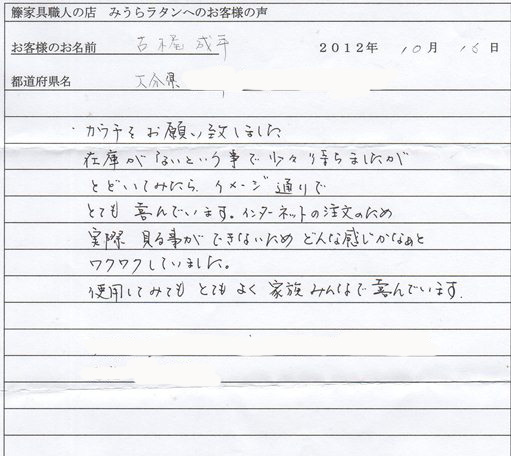 籐家具職人の店 みうらラタンへのお客様の声
お客様のお名前 成平 2012年 10月 16日
都道府県名 大分県
・カウチをお願い致しました
在庫がないという事で少々待ちましたが
とどいてみたら、イメージ通りで
とても喜んでいます。インターネットの注文のため
実際見る事ができないためどんな感じかなぁと
ワクワクしていました。
使用してみてもとてもよく家族みんなで喜んでいます.